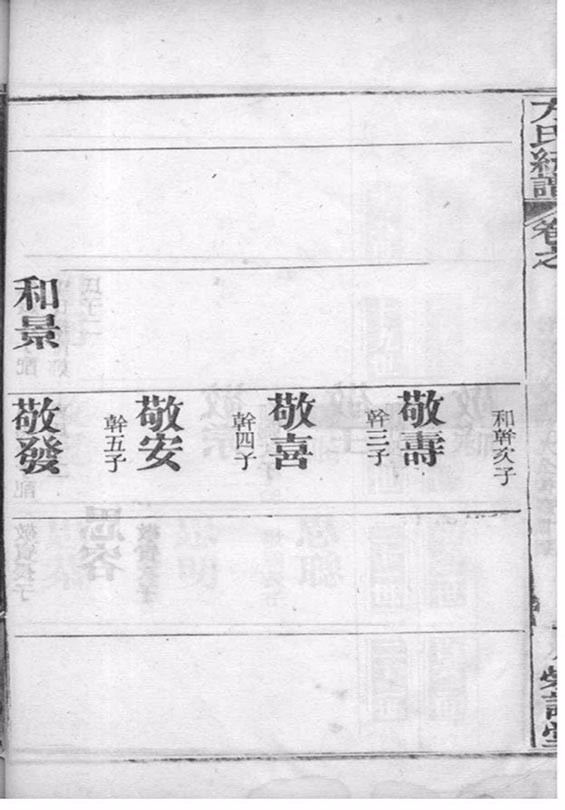 方氏統譜
卷之
和幹次子
敬壽
幹三子
敬喜
幹四子
敬安
幹五子
和景
敬發